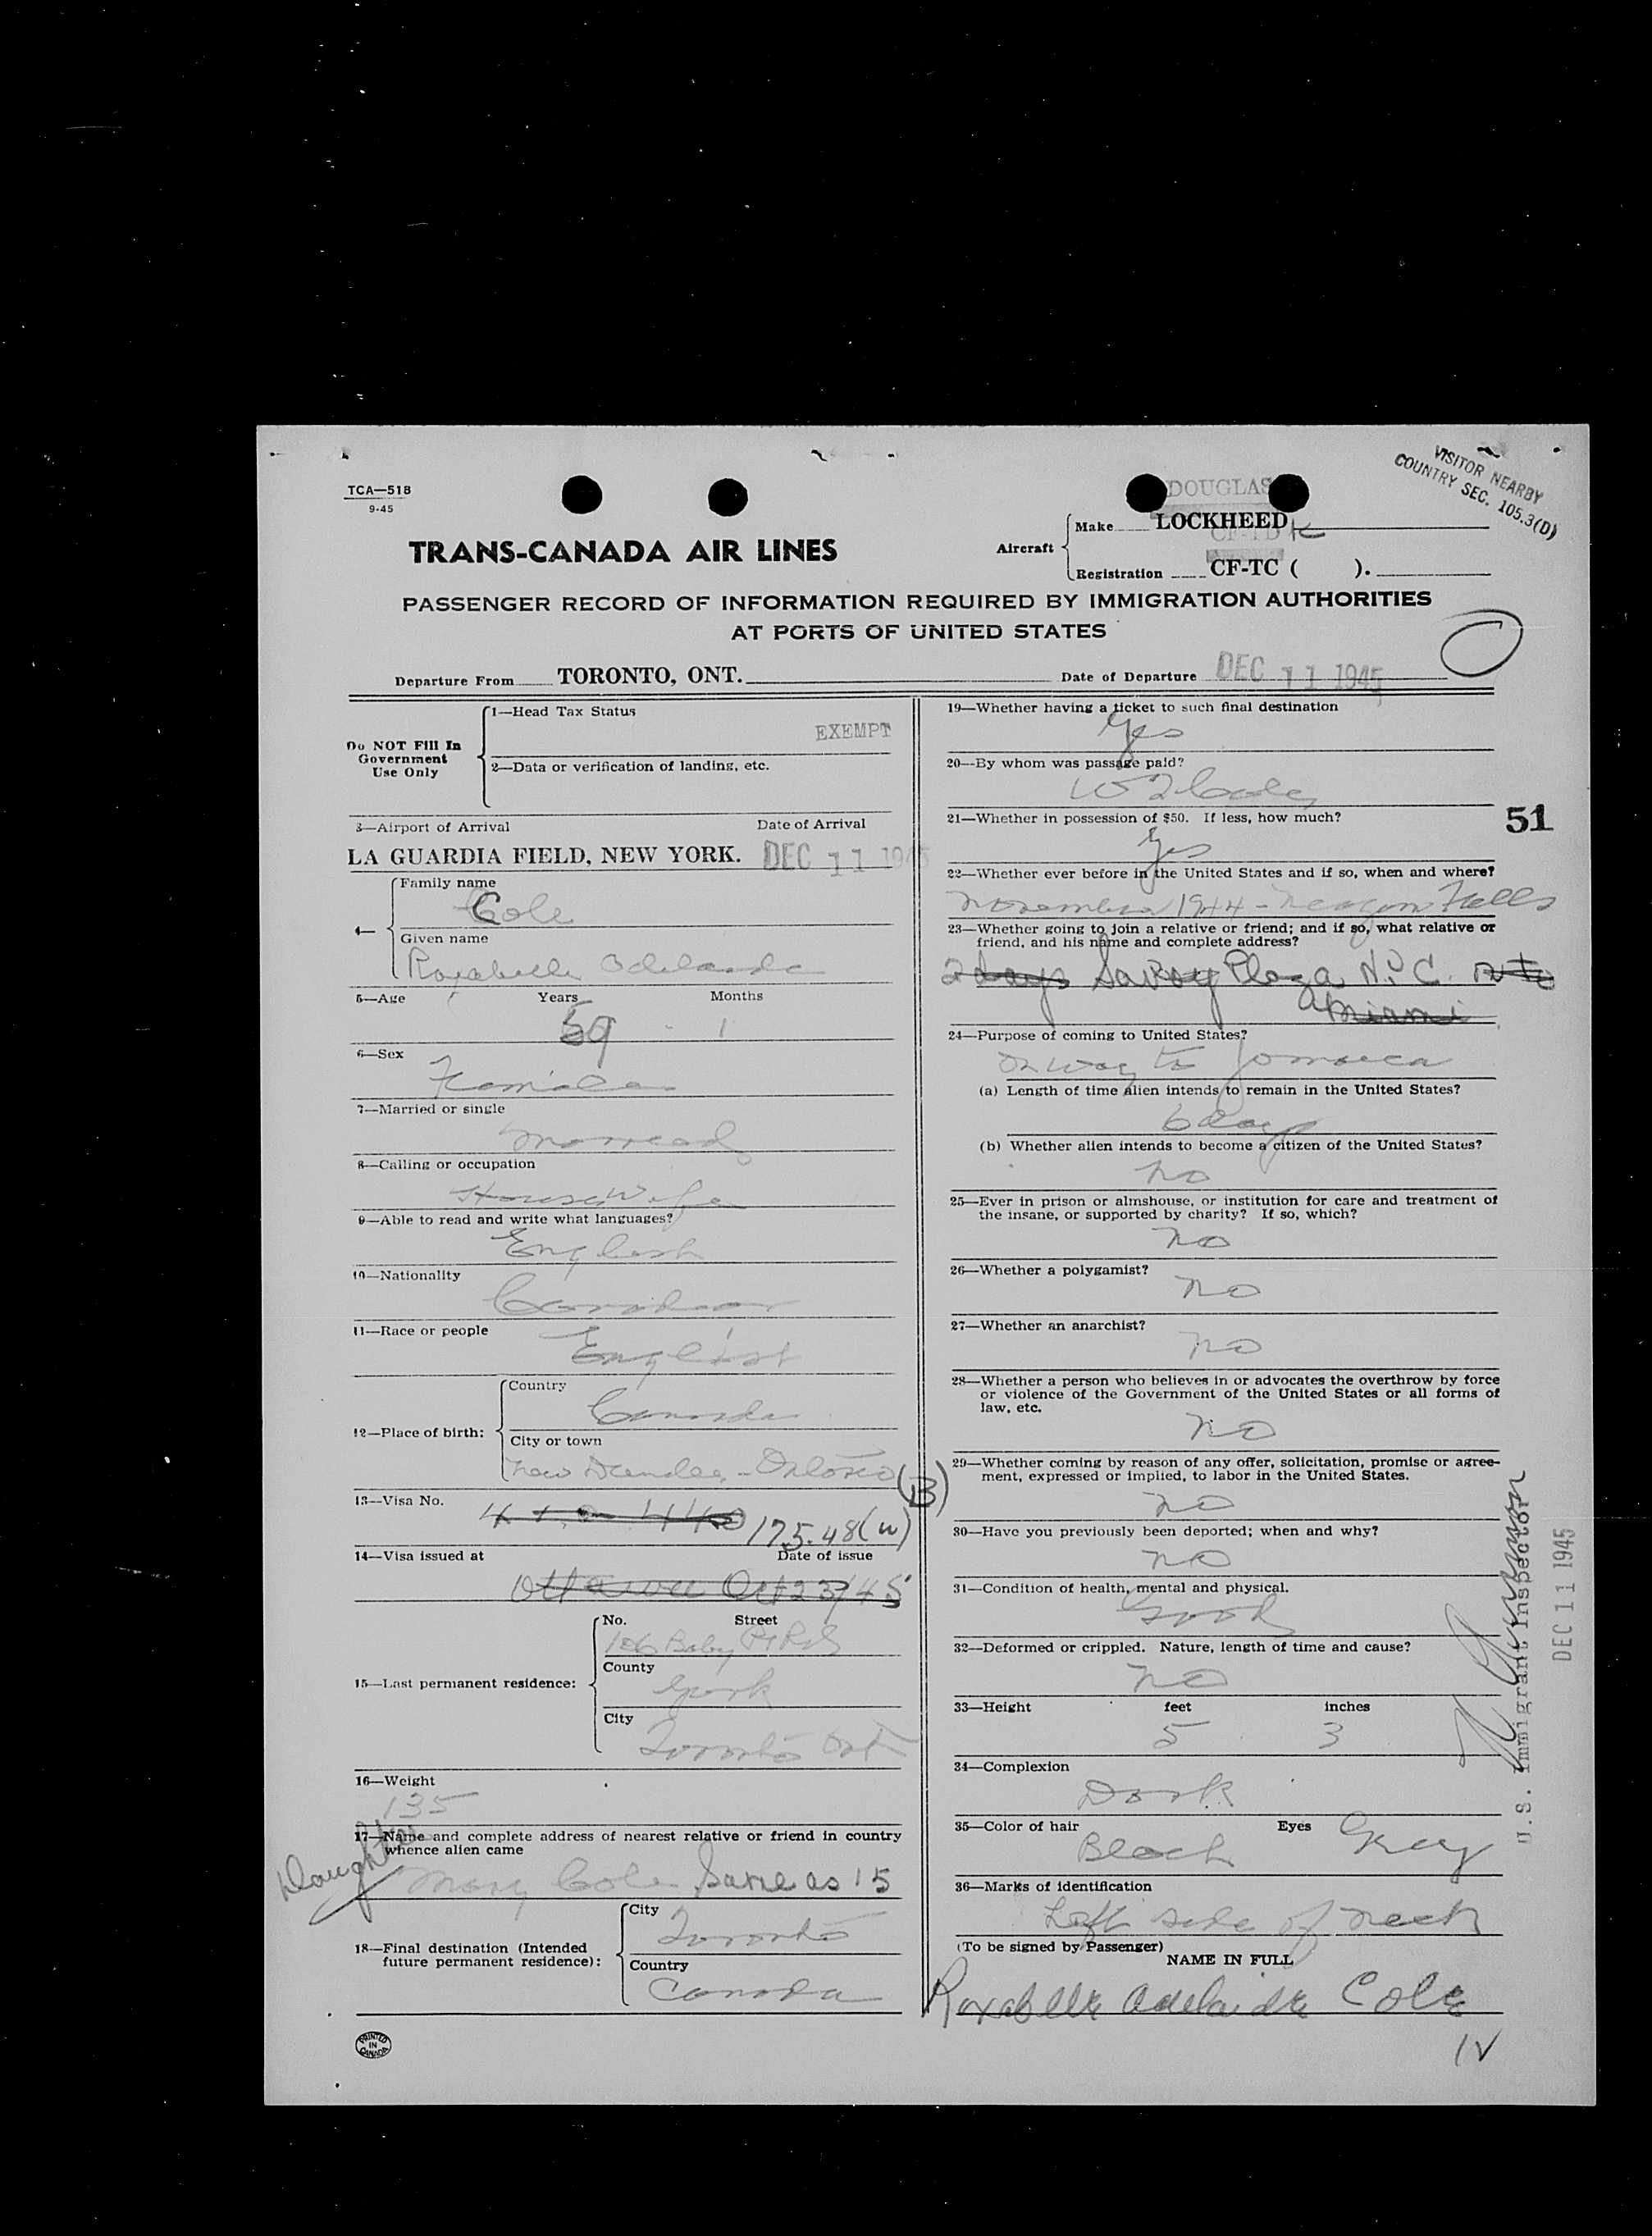 VISITOR NEARBY
COUNTRY SEC. 105.3(D)
TCA—518
9-45
DOUGLAS
Make LOCKHEED
CF-TD K
TRANS-CANADA AIR LINES
Aircraft
Registration CF-TC ( ).
PASSENGER RECORD OF INFORMATION REQUIRED BY IMMIGRATION AUTHORITIES
AT PORTS OF UNITED STATES
Departure From TORONTO, ONT.
Date of Departure DEC 11 1945
Do NOT Fill In
Government
Use Only
1—Head Tax Status
EXEMPT
2—Data or verification of landing, etc.
3—Airport of Arrival Date of Arrival
LA GUARDIA FIELD, NEW YORK. DEC 11 1945
4—
Family name
Cole
Given name
Roxabelle Adelaide
5—Age Years Months
59 - 1
6—Sex
Female
7—Married or single
Married
8—Calling or occupation
House Wife
9—Able to read and write what languages?
English
10—Nationality
Canadian
11—Race or people
English
12—Place of birth:
Country
Canada
City or town
New Dundee - Ontario
(B)
13—Visa No.
175.48(w)
14—Visa issued at Date of issue
Ottawa Oct 23/45
15—Last permanent residence:
No. Street
106 Baby Pt Rd
County
York
City
Toronto Ont
16—Weight
135
17—Name and complete address of nearest relative or friend in country
whence alien came
Daughter
Mary Cole Same as 15
18—Final destination (Intended
future permanent residence):
City
Toronto
Country
Canada
PRINTED
IN
CANADA
19—Whether having a ticket to such final destination
Yes
20—By whom was passage paid?
Cole
21—Whether in possession of $50. If less, how much?
Yes
51
22—Whether ever before in the United States and if so, when and where?
November 1944 - Falls
23—Whether going to join a relative or friend; and if so, what relative or
friend, and his name and complete address?
2 days Savoy Plaza N.Y.C.
Miami
24—Purpose of coming to United States?
On way to Jamaica
(a) Length of time alien intends to remain in the United States?
6 days
(b) Whether alien intends to become a citizen of the United States?
no
25—Ever in prison or almshouse, or institution for care and treatment of
the insane, or supported by charity? If so, which?
no
26—Whether a polygamist?
no
27—Whether an anarchist?
no
28—Whether a person who believes in or advocates the overthrow by force
or violence of the Government of the United States or all forms of
law, etc.
no
29—Whether coming by reason of any offer, solicitation, promise or agree-
ment, expressed or implied, to labor in the United States.
no
30—Have you previously been deported; when and why?
no
31—Condition of health, mental and physical.
Good
32—Deformed or crippled. Nature, length of time and cause?
no
33—Height feet inches
5 3
34—Complexion
Dark
35—Color of hair Eyes
Black Grey
36—Marks of identification
Left side of neck
(To be signed by Passenger)
NAME IN FULL
Roxabelle Adelaide Cole
U.S. Immigrant Inspector
DEC 11 1945